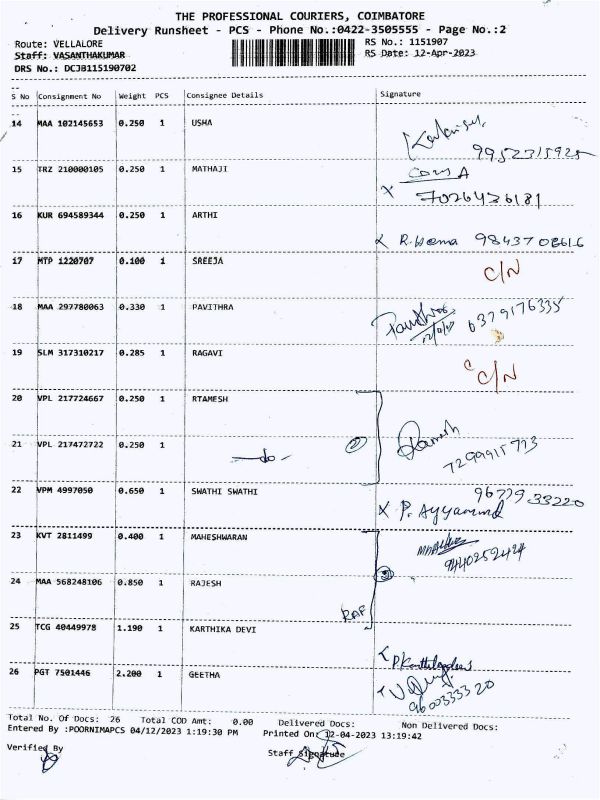 THE PROFESSIONAL COURIERS, COIMBATORE
Delivery Runsheet - PCS - Phone No.:0422-3505555 - Page No.:2
Route: VELLALORE RS No.: 1151907
Staff: VASANTHAKUMAR RS Date: 12-Apr-2023
DRS No.: DCJB115190702
S No Consignment No Weight PCS Consignee Details Signature
14 MAA 102145653 0.250 1 USHA
9952315925
15 TRZ 210000105 0.250 1 MATHAJI
X 7026426181
16 KUR 694589344 0.250 1 ARTHI
R. Hema 9843708616
17 MTP 1220707 0.100 1 SREEJA C/N
18 MAA 297780063 0.330 1 PAVITHRA 6379176335
19 SLM 317310217 0.285 1 RAGAVI C/N
20 VPL 217724667 0.250 1 RTAMESH
21 VPL 217472722 0.250 1 -do- 2 Ramesh
7299915773
22 VPM 4997050 0.650 1 SWATHI SWATHI 9677933220
X P. Ayyammal
23 KVT 2811499 0.400 1 MAHESHWARAN
9440252424
24 MAA 568248106 0.850 1 RAJESH
25 TCG 40449978 1.190 1 KARTHIKA DEVI
26 PGT 7501446 2.200 1 GEETHA
9600333320
Total No. Of Docs: 26 Total COD Amt: 0.00 Delivered Docs: Non Delivered Docs:
Entered By :POORNIMAPCS 04/12/2023 1:19:30 PM Printed On: 12-04-2023 13:19:42
Verified By Staff Signature